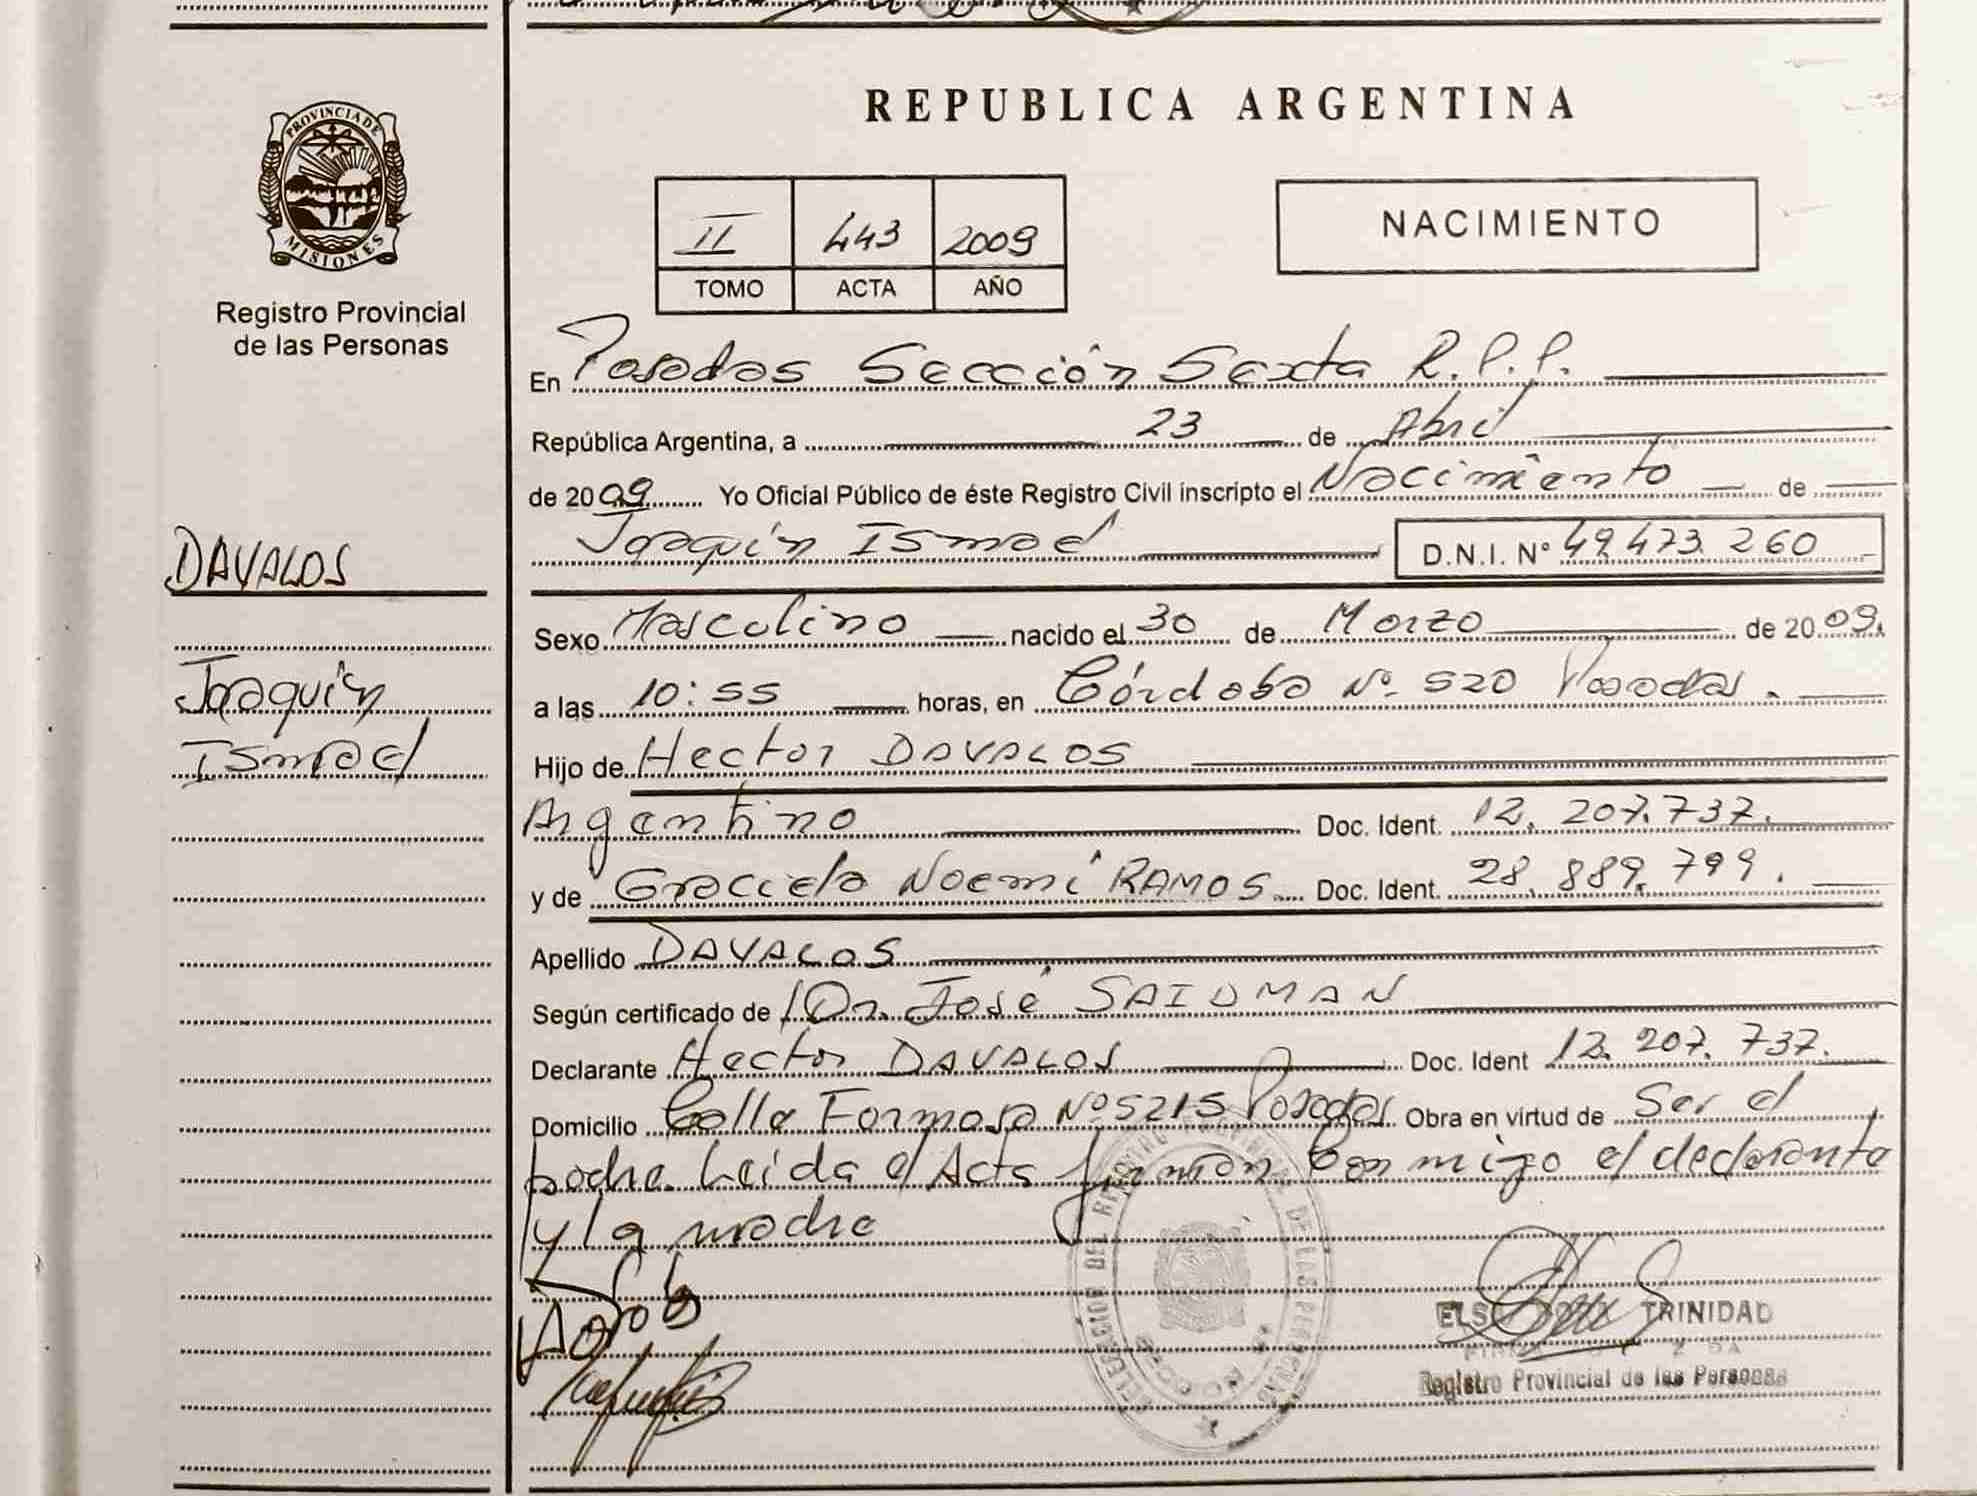 PROVINCIA DE
MISIONES
Registro Provincial
de las Personas
DAVALOS
Joaquín
Ismael
REPUBLICA ARGENTINA
II 443 2009
TOMO ACTA AÑO
NACIMIENTO
En Posadas Sección Sexta R.P.P.
República Argentina, a 23 de Abril
de 2009 Yo Oficial Público de éste Registro Civil inscripto el Nacimiento de
Joaquín Ismael D.N.I. N° 49.473.260
Sexo Masculino nacido el 30 de Marzo de 2009.
a las 10:55 horas, en Córdoba Nº 520 Posadas.
Hijo de Hector DAVALOS
Argentino Doc. Ident. 12.207.737.
y de Graciela Noemí RAMOS Doc. Ident. 28.889.799.
Apellido DAVALOS
Según certificado de Dr. José SAIDMAN
Declarante Hector DAVALOS Doc. Ident 12.207.737.
Domicilio Calle Formosa Nº 5215 Posadas Obra en virtud de Ser el
padre. Leída el Acta firman Conmigo el declarante
y la madre
TRINIDAD
Registro Provincial de las Personas